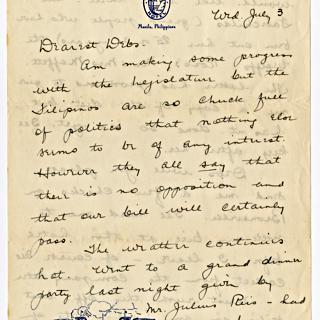 Manila, Philippines
Wed. July 3
Dearest Debs.
Am making some progress
with the legislature but the
Filipinos are so chuck full
of politics that nothing else
seems to be of any interest.
However they all say that
there is no opposition and
that our bill will certainly
pass.
The weather continues
hot. Went to a grand dinner
party last night given by
Mr. Julius Reis - had